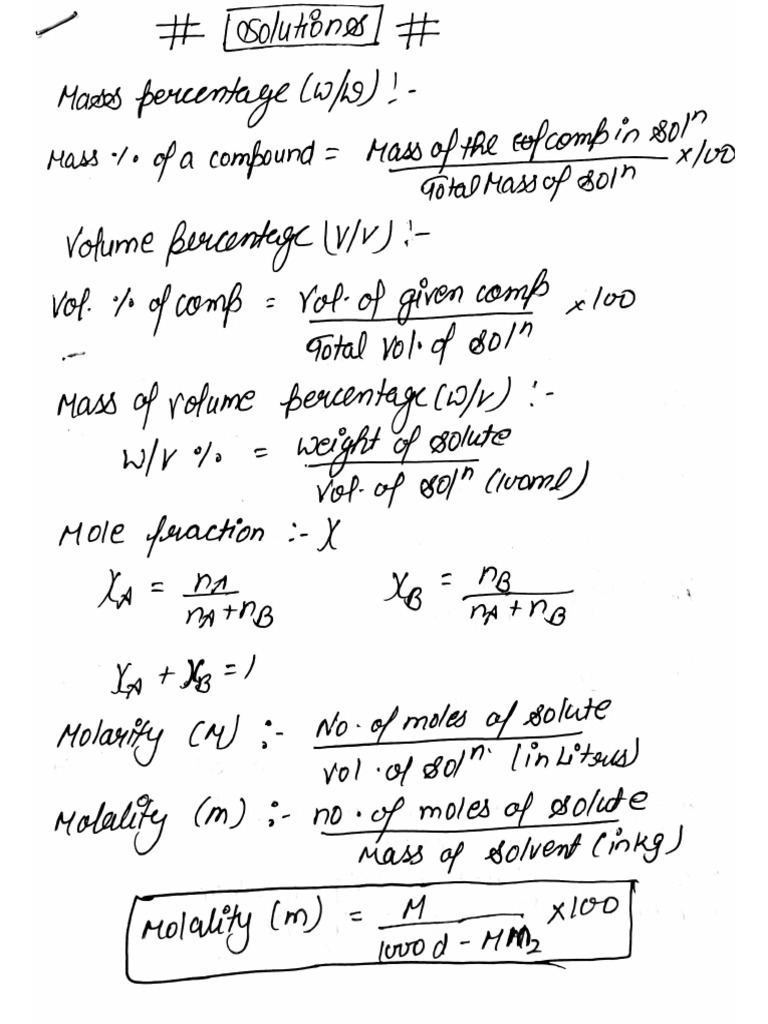 # Solutions #
Mass percentage (w/w) :-
Mass % of a compound = Mass of the comp in Solⁿ / Total Mass of Solⁿ × 100
Volume percentage (V/V) :-
Vol. % of comp = Vol. of given comp / Total Vol. of Solⁿ × 100
Mass of volume percentage (w/v) :-
w/v % = weight of solute / Vol. of Solⁿ (100ml)
Mole fraction :- X
X_A = n_A / n_A + n_B    X_B = n_B / n_A + n_B
X_A + X_B = 1
Molarity (M) :- No. of moles of solute / vol. of Solⁿ. (in Liters)
Molality (m) :- no. of moles of solute / Mass of solvent (in kg)
Molality (m) = M / 1000 d - M M₂ × 100